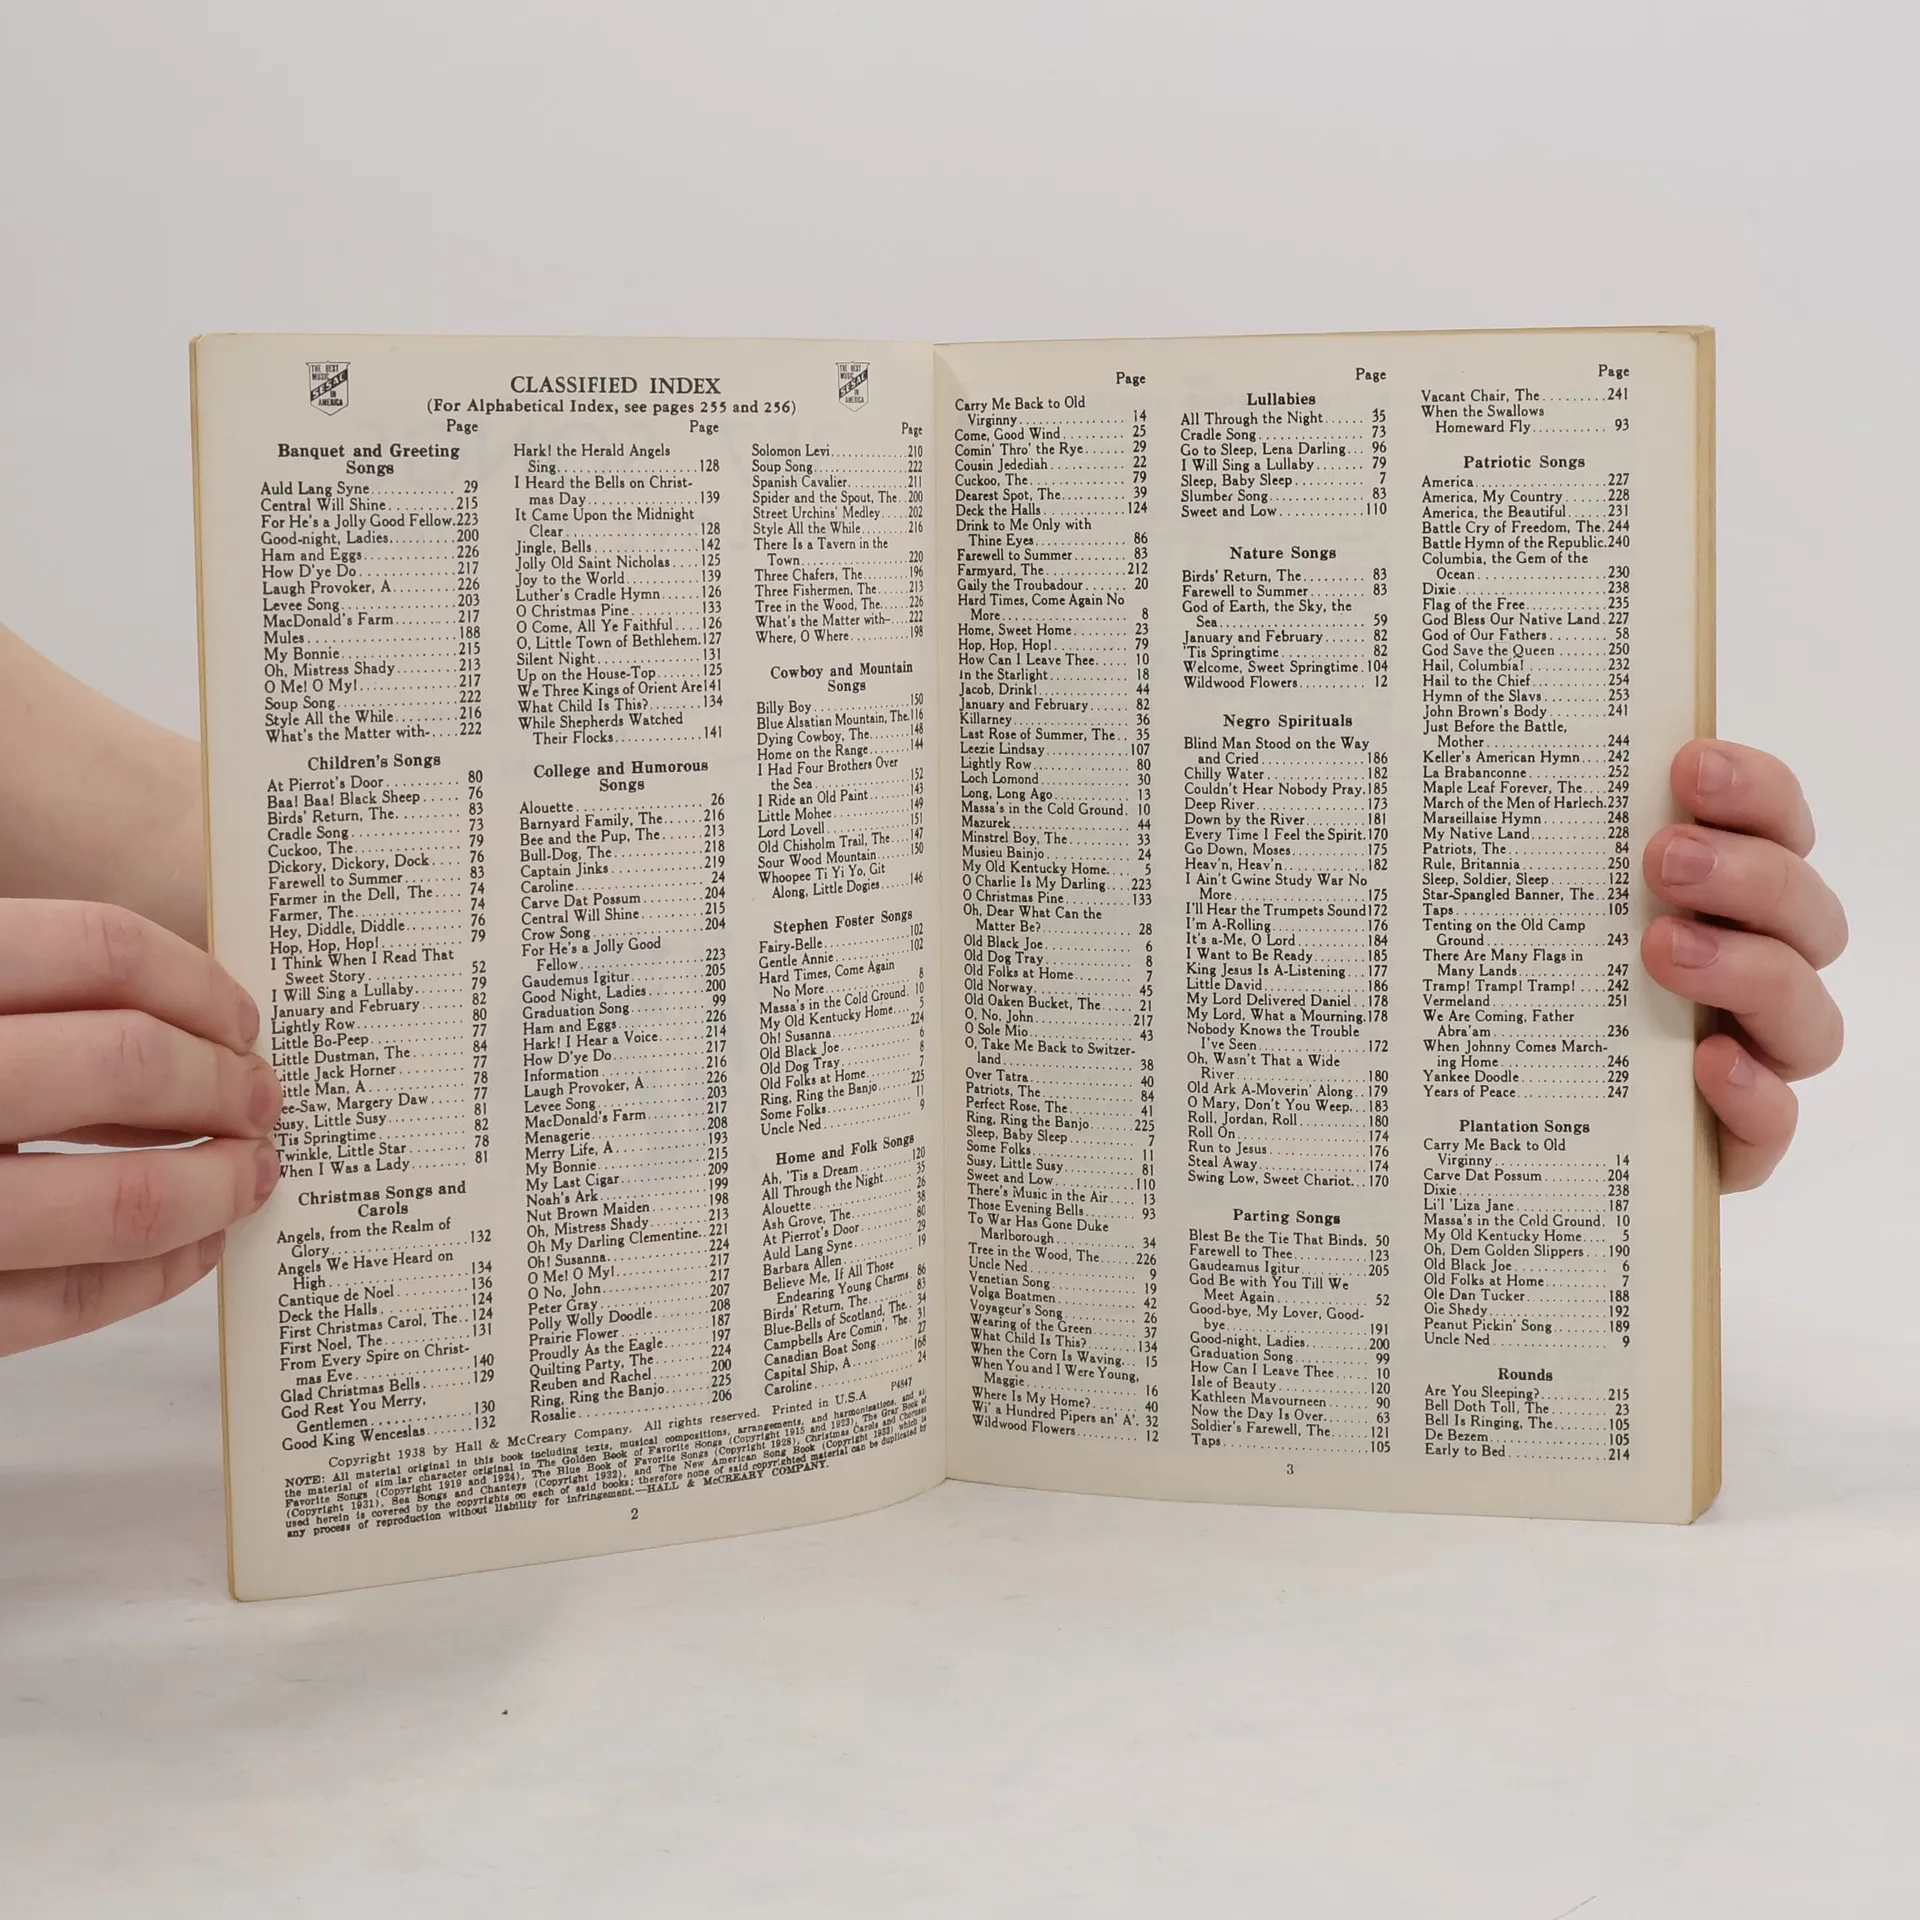 THE BEST
MUSIC
SESAC
IN
AMERICA
CLASSIFIED INDEX
(For Alphabetical Index, see pages 255 and 256)
THE BEST
MUSIC
SESAC
IN
AMERICA
Page
Banquet and Greeting
Songs
Auld Lang Syne............ 29
Central Will Shine..........215
For He's a Jolly Good Fellow.223
Good-night, Ladies..........200
Ham and Eggs.............226
How D'ye Do..............217
Laugh Provoker, A..........226
Levee Song................203
MacDonald's Farm..........217
Mules.....................188
My Bonnie.................215
Oh, Mistress Shady.........213
O Me! O My!..............217
Soup Song.................222
Style All the While.........216
What's the Matter with-....222
Children's Songs
At Pierrot's Door.......... 80
Baa! Baa! Black Sheep..... 76
Birds' Return, The......... 83
Cradle Song............... 73
Cuckoo, The............... 79
Dickory, Dickory, Dock.... 76
Farewell to Summer........ 83
Farmer in the Dell, The.... 74
Farmer, The............... 74
Hey, Diddle, Diddle........ 76
Hop, Hop, Hop!........... 79
I Think When I Read That
Sweet Story............. 52
I Will Sing a Lullaby....... 79
January and February...... 82
Lightly Row............... 80
Little Bo-Peep............. 77
Little Dustman, The....... 84
Little Jack Horner......... 77
Little Man, A.............. 78
ee-Saw, Margery Daw..... 77
Susy, Little Susy........... 81
'Tis Springtime............ 82
Twinkle, Little Star........ 78
When I Was a Lady........ 81
Christmas Songs and
Carols
Angels, from the Realm of
Glory...................132
Angels We Have Heard on
High...................134
Cantique de Noel...........136
Deck the Halls.............124
First Christmas Carol, The..124
First Noel, The.............131
From Every Spire on Christ-
mas Eve.................140
Glad Christmas Bells.......129
God Rest You Merry,
Gentlemen...............130
Good King Wenceslas.......132
Page
Hark! the Herald Angels
Sing....................128
I Heard the Bells on Christ-
mas Day................139
It Came Upon the Midnight
Clear...................128
Jingle, Bells................142
Jolly Old Saint Nicholas....125
Joy to the World...........139
Luther's Cradle Hymn......126
O Christmas Pine...........133
O Come, All Ye Faithful....126
O, Little Town of Bethlehem.127
Silent Night................131
Up on the House-Top.......125
We Three Kings of Orient Are141
What Child Is This?........134
While Shepherds Watched
Their Flocks.............141
College and Humorous
Songs
Alouette................... 26
Barnyard Family, The......216
Bee and the Pup, The.......213
Bull-Dog, The.............218
Captain Jinks..............219
Caroline................... 24
Carve Dat Possum..........204
Central Will Shine..........215
Crow Song.................204
For He's a Jolly Good
Fellow..................223
Gaudemus Igitur...........205
Good Night, Ladies.........200
Graduation Song........... 99
Ham and Eggs.............226
Hark! I Hear a Voice.......214
How D'ye Do..............217
Information................216
Laugh Provoker, A.........226
Levee Song................203
MacDonald's Farm.........217
Menagerie.................208
Merry Life, A..............193
My Bonnie.................215
My Last Cigar.............209
Noah's Ark................199
Nut Brown Maiden.........198
Oh, Mistress Shady.........213
Oh My Darling Clementine..221
Oh! Susanna...............224
O Me! O My!..............217
O No, John................217
Peter Gray.................207
Polly Wolly Doodle.........208
Prairie Flower..............187
Proudly As the Eagle.......197
Quilting Party, The........224
Reuben and Rachel.........200
Ring, Ring the Banjo.......225
Rosalie....................206
Page
Solomon Levi..............210
Soup Song.................222
Spanish Cavalier............211
Spider and the Spout, The..200
Street Urchins' Medley.....202
Style All the While.........216
There Is a Tavern in the
Town...................220
Three Chafers, The.........196
Three Fishermen, The......213
Tree in the Wood, The......226
What's the Matter with-...222
Where, O Where...........198
Cowboy and Mountain
Songs
Billy Boy..................150
Blue Alsatian Mountain, The.116
Dying Cowboy, The........148
Home on the Range........144
I Had Four Brothers Over
the Sea.................152
I Ride an Old Paint........143
Little Mohee...............149
Lord Lovell................151
Old Chisholm Trail, The....147
Sour Wood Mountain.......150
Whoopee Ti Yi Yo, Git
Along, Little Dogies......146
Stephen Foster Songs
Fairy-Belle................102
Gentle Annie...............102
Hard Times, Come Again
No More................ 8
Massa's in the Cold Ground. 10
My Old Kentucky Home.... 5
Oh! Susanna...............224
Old Black Joe.............. 6
Old Dog Tray.............. 8
Old Folks at Home......... 7
Ring, Ring the Banjo.......225
Some Folks................ 11
Uncle Ned................. 9
Home and Folk Songs
Ah, 'Tis a Dream...........120
All Through the Night...... 35
Alouette................... 26
Ash Grove, The............ 38
At Pierrot's Door.......... 80
Auld Lang Syne............ 29
Barbara Allen.............. 19
Believe Me, If All Those
Endearing Young Charms. 86
Birds' Return, The......... 83
Blue-Bells of Scotland, The.. 34
Campbells Are Comin', The. 31
Canadian Boat Song........ 27
Capital Ship, A.............168
Caroline................... 24
Copyright 1938 by Hall & McCreary Company. All rights reserved. Printed in U.S.A. P4847
NOTE: All material original in this book including texts, musical compositions, arrangements, and harmonisations, and all
the material of similar character original in The Golden Book of Favorite Songs (Copyright 1915 and 1923), The Gray Book of
Favorite Songs (Copyright 1919 and 1924), The Blue Book of Favorite Songs (Copyright 1928), Christmas Carols and Choruses
(Copyright 1931), Sea Songs and Chanteys (Copyright 1932), and The New American Song Book (Copyright 1933) which is
used herein is covered by the copyrights on each of said books; therefore none of said copyrighted material can be duplicated by
any process of reproduction without liability for infringement.—HALL & McCREARY COMPANY.
2
Page
Carry Me Back to Old
Virginny................ 14
Come, Good Wind......... 25
Comin' Thro' the Rye...... 29
Cousin Jedediah........... 22
Cuckoo, The............... 79
Dearest Spot, The......... 39
Deck the Halls.............124
Drink to Me Only with
Thine Eyes.............. 86
Farewell to Summer........ 83
Farmyard, The.............212
Gaily the Troubadour...... 20
Hard Times, Come Again No
More................... 8
Home, Sweet Home........ 23
Hop, Hop, Hop!........... 79
How Can I Leave Thee..... 10
In the Starlight............ 18
Jacob, Drink!.............. 44
January and February...... 82
Killarney.................. 36
Last Rose of Summer, The.. 35
Leezie Lindsay.............107
Lightly Row............... 80
Loch Lomond.............. 30
Long, Long Ago........... 13
Massa's in the Cold Ground. 10
Mazurek................... 44
Minstrel Boy, The......... 33
Musieu Bainjo............. 24
My Old Kentucky Home.... 5
O Charlie Is My Darling....223
O Christmas Pine..........133
Oh, Dear What Can the
Matter Be?.............. 28
Old Black Joe.............. 6
Old Dog Tray.............. 8
Old Folks at Home......... 7
Old Norway............... 45
Old Oaken Bucket, The.... 21
O, No, John...............217
O Sole Mio................ 43
O, Take Me Back to Switzer-
land.................... 38
Over Tatra................ 40
Patriots, The.............. 84
Perfect Rose, The.......... 41
Ring, Ring the Banjo.......225
Sleep, Baby Sleep.......... 7
Some Folks................ 11
Susy, Little Susy........... 81
Sweet and Low.............110
There's Music in the Air.... 13
Those Evening Bells........ 93
To War Has Gone Duke
Marlborough............ 34
Tree in the Wood, The.....226
Uncle Ned................. 9
Venetian Song............. 19
Volga Boatmen............ 42
Voyageur's Song........... 26
Wearing of the Green....... 37
What Child Is This?........134
When the Corn Is Waving... 15
When You and I Were Young,
Maggie................. 16
Where Is My Home?....... 40
Wi' a Hundred Pipers an' A'. 32
Wildwood Flowers.......... 12
Page
Lullabies
All Through the Night...... 35
Cradle Song............... 73
Go to Sleep, Lena Darling... 96
I Will Sing a Lullaby....... 79
Sleep, Baby Sleep.......... 7
Slumber Song.............. 83
Sweet and Low............110
Nature Songs
Birds' Return, The......... 83
Farewell to Summer........ 83
God of Earth, the Sky, the
Sea..................... 59
January and February...... 82
'Tis Springtime............ 82
Welcome, Sweet Springtime.104
Wildwood Flowers.......... 12
Negro Spirituals
Blind Man Stood on the Way
and Cried...............186
Chilly Water...............182
Couldn't Hear Nobody Pray.185
Deep River................173
Down by the River.........181
Every Time I Feel the Spirit.170
Go Down, Moses...........175
Heav'n, Heav'n............182
I Ain't Gwine Study War No
More...................175
I'll Hear the Trumpets Sound172
I'm A-Rolling..............176
It's a-Me, O Lord..........184
I Want to Be Ready........185
King Jesus Is A-Listening...177
Little David...............186
My Lord Delivered Daniel..178
My Lord, What a Mourning.178
Nobody Knows the Trouble
I've Seen................172
Oh, Wasn't That a Wide
River...................180
Old Ark A-Moverin' Along..179
O Mary, Don't You Weep...183
Roll, Jordan, Roll..........180
Roll On...................174
Run to Jesus...............176
Steal Away................174
Swing Low, Sweet Chariot...170
Parting Songs
Blest Be the Tie That Binds. 50
Farewell to Thee...........123
Gaudeamus Igitur..........205
God Be with You Till We
Meet Again.............. 52
Good-bye, My Lover, Good-
bye.....................191
Good-night, Ladies.........200
Graduation Song........... 99
How Can I Leave Thee..... 10
Isle of Beauty.............120
Kathleen Mavourneen...... 90
Now the Day Is Over....... 63
Soldier's Farewell, The......121
Taps......................105
Page
Vacant Chair, The.........241
When the Swallows
Homeward Fly.......... 93
Patriotic Songs
America...................227
America, My Country......228
America, the Beautiful......231
Battle Cry of Freedom, The.244
Battle Hymn of the Republic.240
Columbia, the Gem of the
Ocean..................230
Dixie.....................238
Flag of the Free............235
God Bless Our Native Land.227
God of Our Fathers........ 58
God Save the Queen.......250
Hail, Columbia!............232
Hail to the Chief...........254
Hymn of the Slavs.........253
John Brown's Body........241
Just Before the Battle,
Mother.................244
Keller's American Hymn....242
La Brabanconne...........252
Maple Leaf Forever, The...249
March of the Men of Harlech.237
Marseillaise Hymn.........248
My Native Land...........228
Patriots, The.............. 84
Rule, Britannia............250
Sleep, Soldier, Sleep........122
Star-Spangled Banner, The..234
Taps......................105
Tenting on the Old Camp
Ground.................243
There Are Many Flags in
Many Lands............247
Tramp! Tramp! Tramp!....242
Vermeland.................251
We Are Coming, Father
Abra'am................236
When Johnny Comes March-
ing Home...............246
Yankee Doodle.............229
Years of Peace.............247
Plantation Songs
Carry Me Back to Old
Virginny................ 14
Carve Dat Possum.........204
Dixie.....................238
Li'l 'Liza Jane.............187
Massa's in the Cold Ground. 10
My Old Kentucky Home.... 5
Oh, Dem Golden Slippers...190
Old Black Joe.............. 6
Old Folks at Home......... 7
Ole Dan Tucker............188
Oie Shady.................192
Peanut Pickin' Song........189
Uncle Ned................. 9
Rounds
Are You Sleeping?.........215
Bell Doth Toll, The........ 23
Bell Is Ringing, The........105
De Bezem.................105
Early to Bed...............214
3